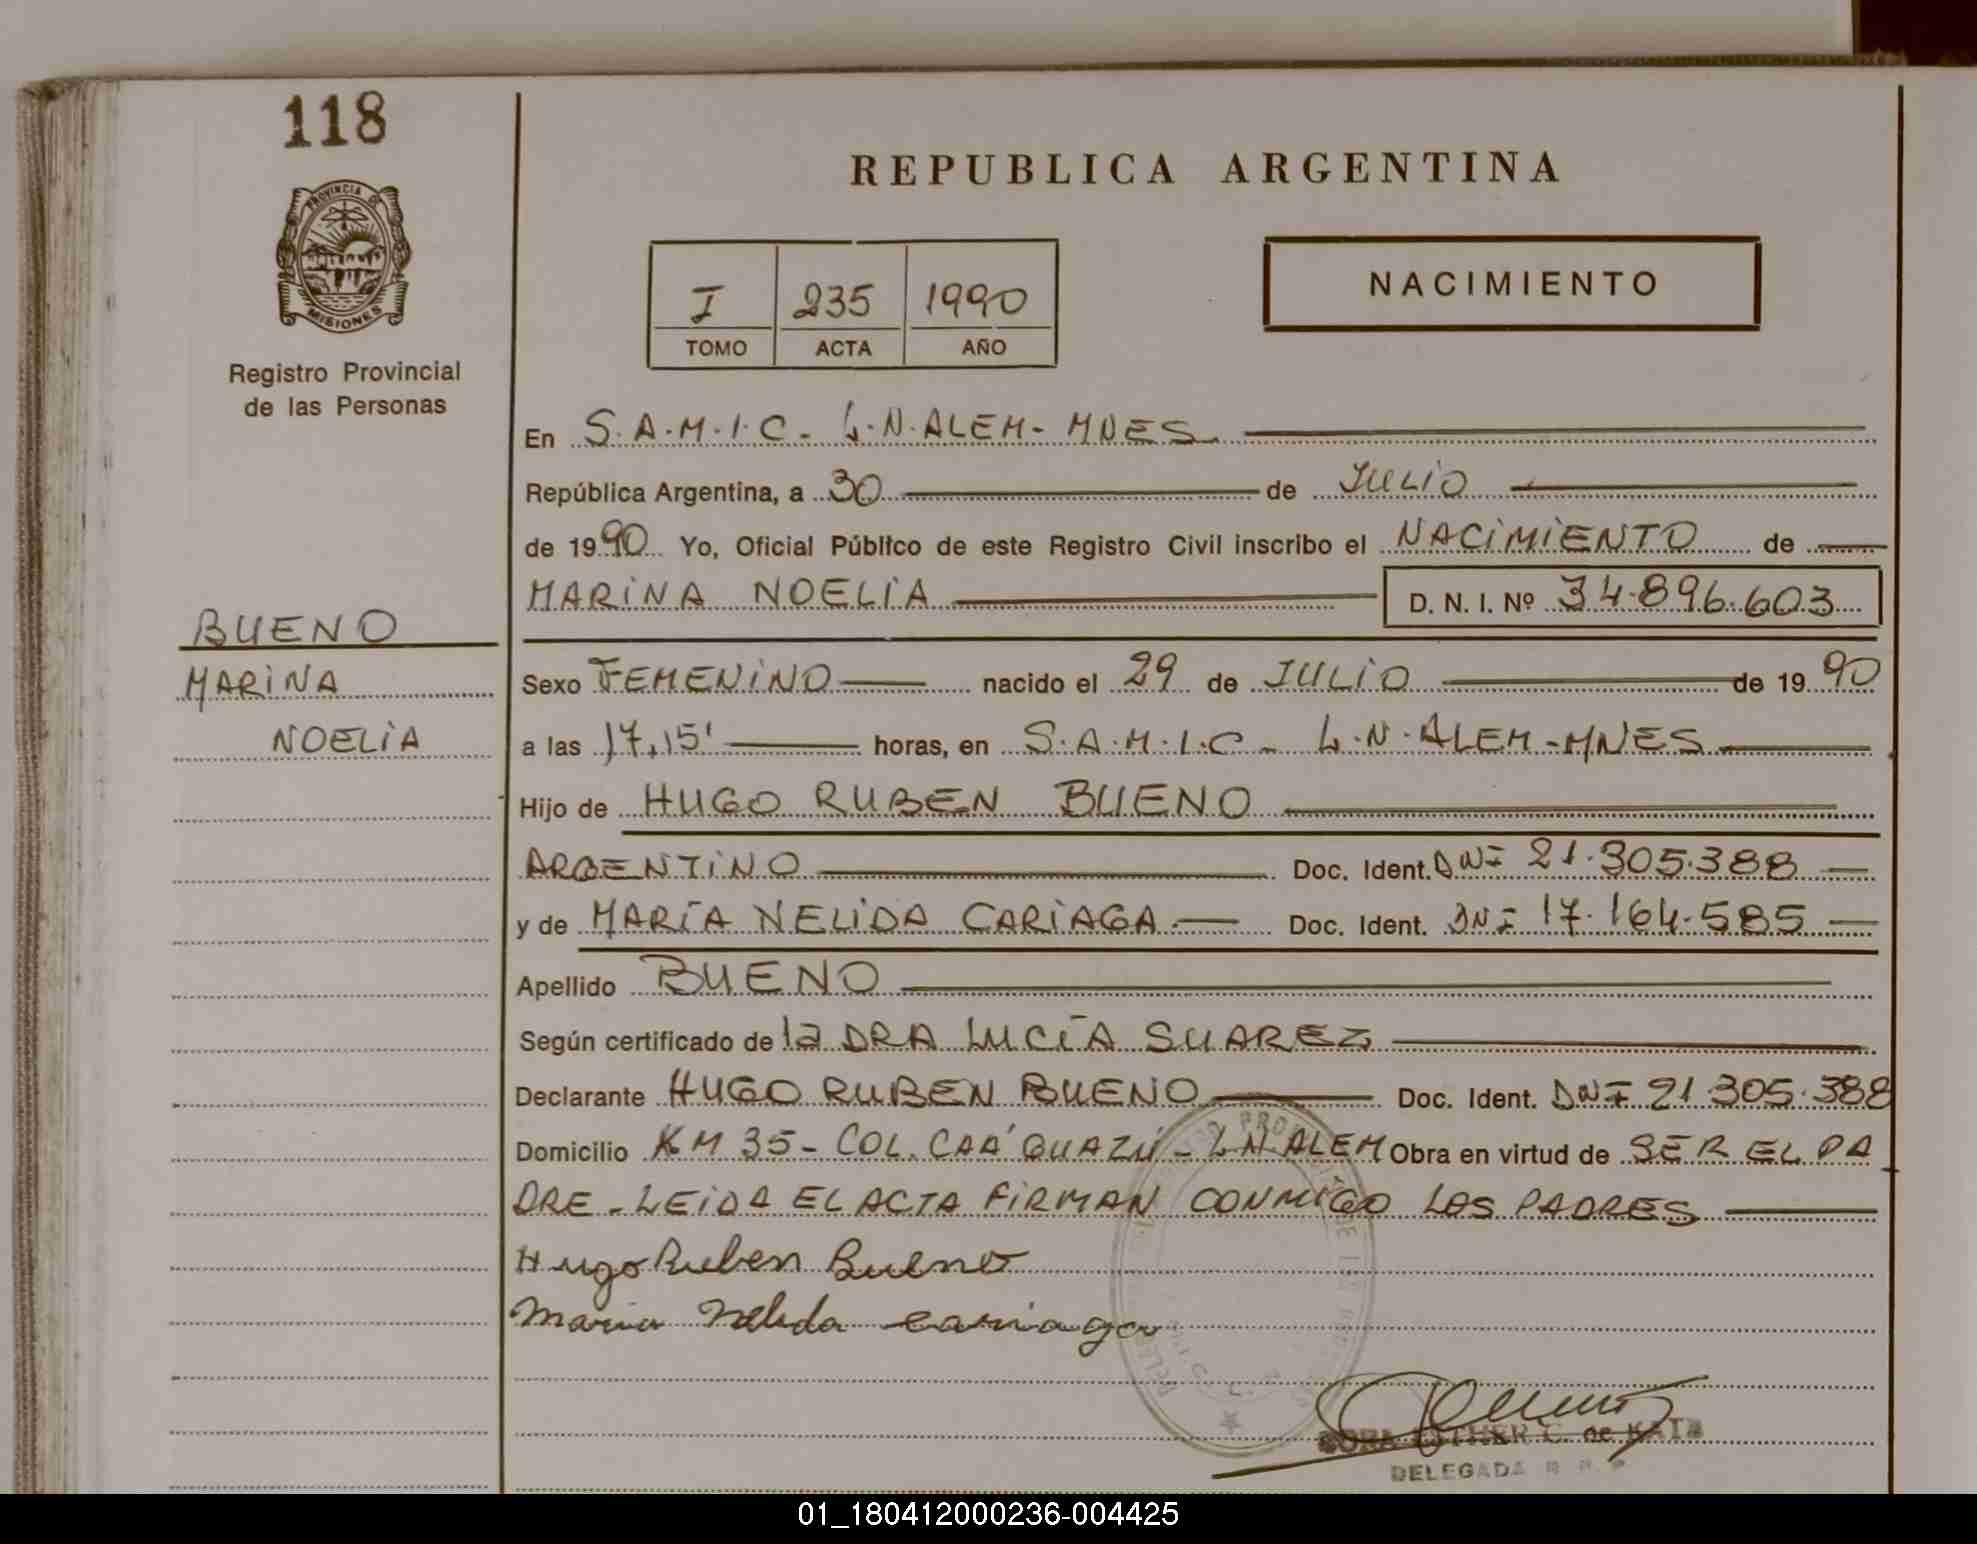 118
REPUBLICA ARGENTINA
PROVINCIA DE
MISIONES
Registro Provincial
de las Personas
NACIMIENTO
I 235 1990
TOMO ACTA AÑO
En S.A.M.I.C. L.N.ALEM- MNES
República Argentina, a 30 de JULIO
de 1990 Yo, Oficial Público de este Registro Civil inscribo el NACIMIENTO de
MARINA NOELIA D. N. I. Nº 34.896.603
BUENO
MARINA
NOELIA
Sexo FEMENINO nacido el 29 de JULIO de 1990
a las 17,15' horas, en S.A.M.I.C - L.N.ALEM-MNES
Hijo de HUGO RUBEN BUENO
ARGENTINO Doc. Ident. DNI 21.305.388
y de MARÍA NELIDA CARIAGA Doc. Ident. DNI 17.164.585
Apellido BUENO
Según certificado de la DRA LUCÍA SUAREZ
Declarante HUGO RUBEN BUENO Doc. Ident. DNI 21.305.388
Domicilio KM 35 - COL. CAÁ GUAZÚ - L.N.ALEM Obra en virtud de SER EL PA
DRE - LEIDA EL ACTA FIRMAN CONMIGO LOS PADRES
Hugo Ruben Bueno
Maria Nelida Cariaga
ESTHER C. de KATZ
DELEGADA R. P.
01_180412000236-004425